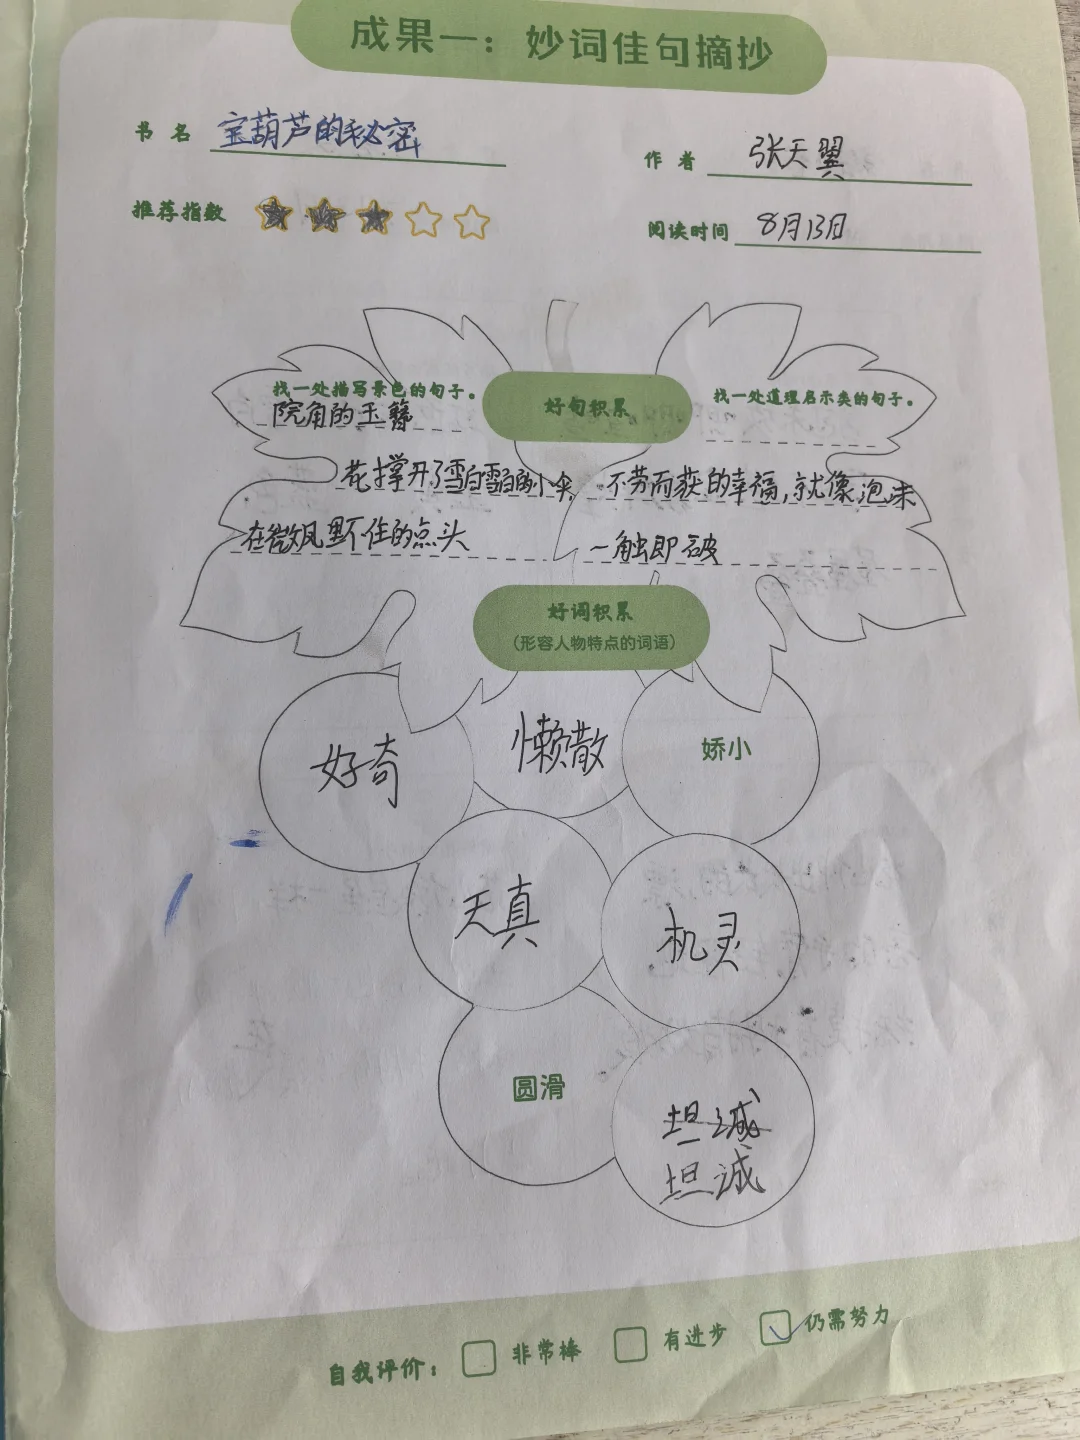 成果一：妙词佳句摘抄
书名 宝葫芦的秘密
作者 张天翼
推荐指数
阅读时间 8月13日
好句积累
找一处描写景色的句子。
院角的玉簪
花撑开了雪白雪白的小伞
在微风里不住的点头
找一处道理启示类的句子。
不劳而获的幸福，就像泡沫
一触即破
好词积累
（形容人物特点的词语）
好奇
懒散
娇小
天真
机灵
圆滑
坦诚
坦诚
自我评价： 非常棒 有进步 仍需努力